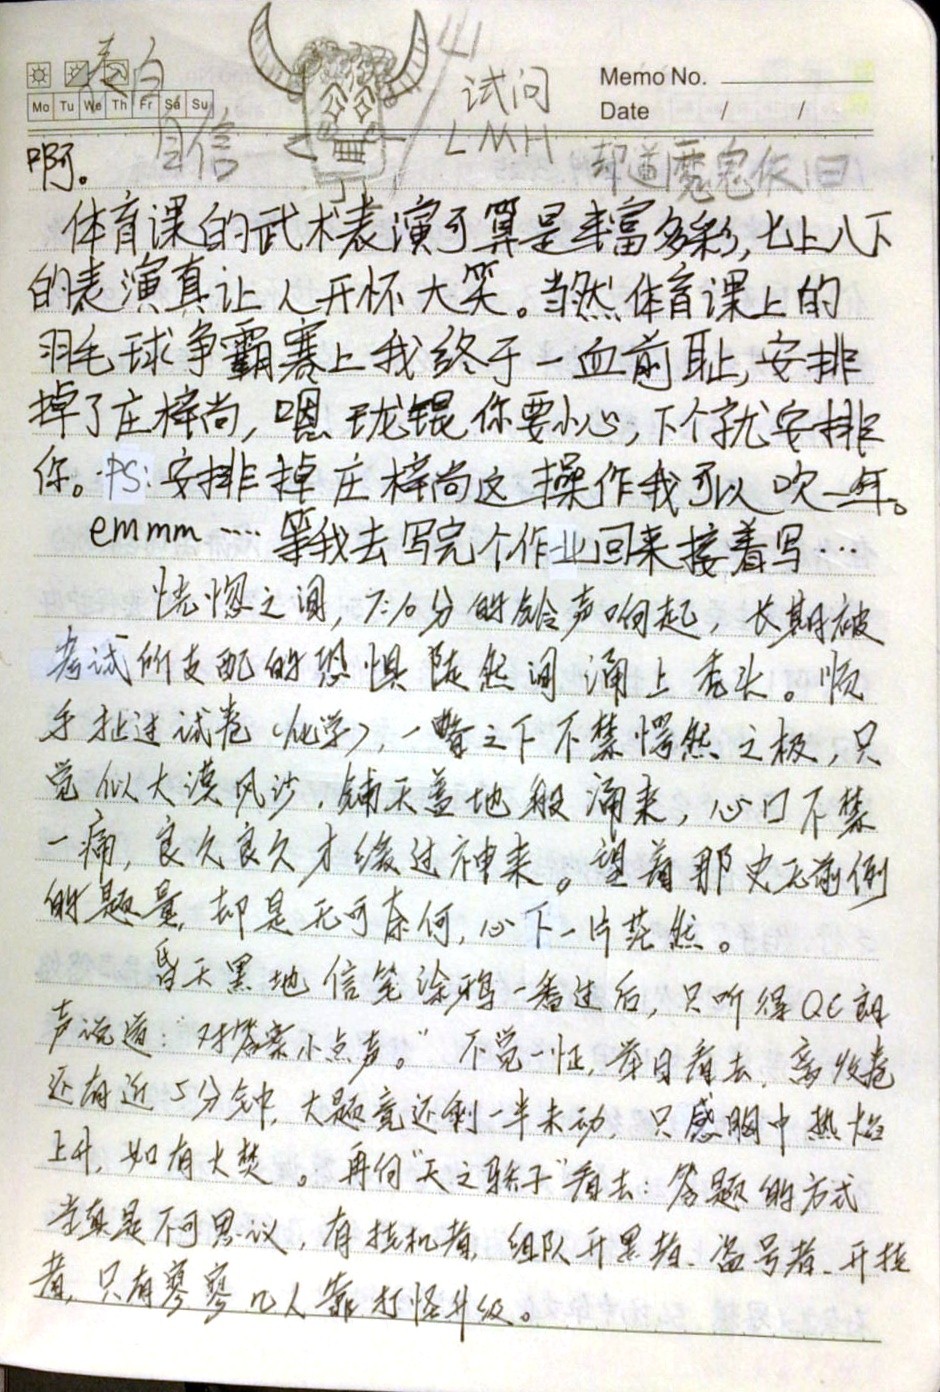 表白
自信
试问
LMH
却道魔鬼依旧
Memo No.
Date / /
Mo Tu We Th Fr Sa Su
啊。
体育课的武术表演可算是丰富多彩,七上八下
的表演真让人开怀大笑。当然体育课上的
羽毛球争霸赛上我终于一血前耻,安排
掉了庄梓尚,嗯珑锟你要小心,下个就安排
你。PS:安排掉庄梓尚这操作我可以吹一年。
emmm……等我去写完个作业回来接着写…
恍惚之间,7:10分的铃声响起,长期被
考试所支配的恐惧陡然间涌上秃头。顺
手扯过试卷(化学),一瞥之下不禁愕然之极,只
觉似大漠风沙,铺天盖地般涌来,心口不禁
一痛,良久良久才缓过神来。望着那史无前例
的题量,却是无可奈何,心下一片茫然。
昏天黑地信笔涂鸦一番过后,只听得QC朗
声说道:“对答案小点声。”不觉一怔,举目看去,离收卷
还有近5分钟,大题竟还剩一半未动,只感胸中热焰
上升,如有火焚。再向“天之骄子”看去:答题的方式
当真是不可思议,有挂机者,组队开黑者、盗号者、开挂
者,只有寥寥几人靠打怪升级。